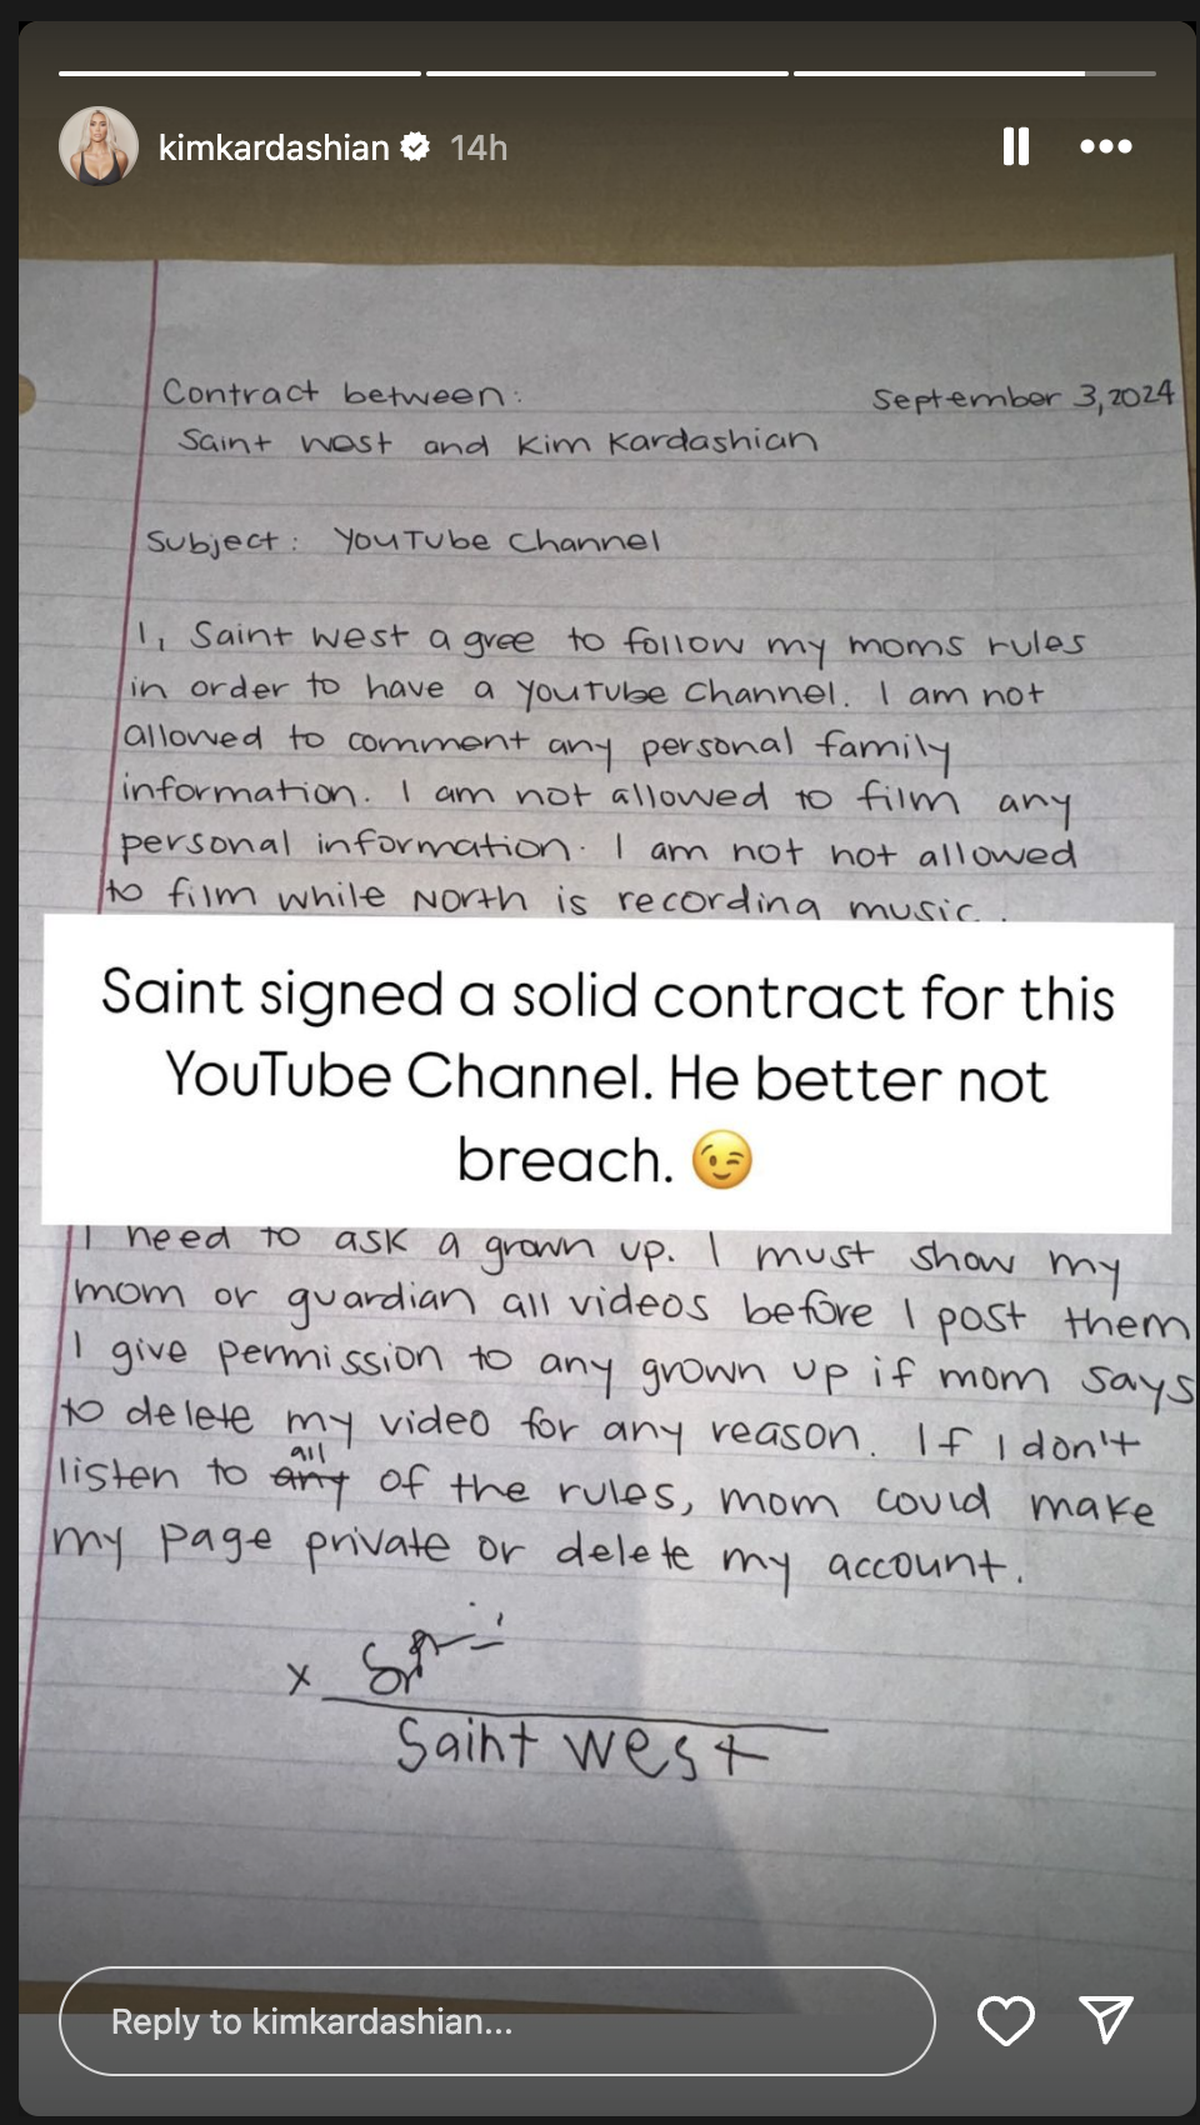 kimkardashian 14h
Contract between:
September 3, 2024
Saint West and Kim Kardashian
Subject: YouTube Channel
I, Saint West agree to follow my moms rules
in order to have a YouTube Channel. I am not
allowed to comment any personal family
information. I am not allowed to film any
personal information. I am not not allowed
to film while North is recording music.
Saint signed a solid contract for this
YouTube Channel. He better not
breach. 😉
I need to ask a grown up. I must show my
mom or guardian all videos before I post them
I give permission to any grown up if mom says
to delete my video for any reason. If I don't
all
listen to any of the rules, mom could make
my page private or delete my account.
x
Saint West
Reply to kimkardashian...